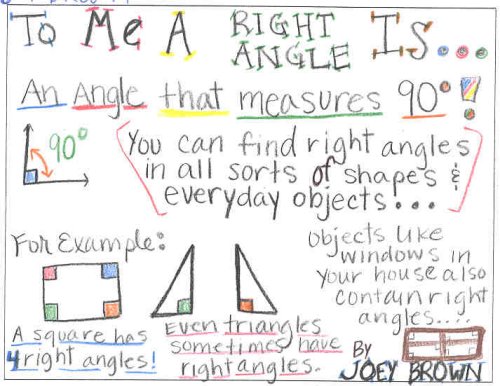 To Me A RIGHT ANGLE Is...
An Angle that measures 90°!
90°
You can find right angles
in all sorts of shapes &
everyday objects...
For Example:
A square has
4 right angles!
Even triangles
sometimes have
right angles.
objects like
windows in
your house also
contain right
angles.....
By
JOEY BROWN